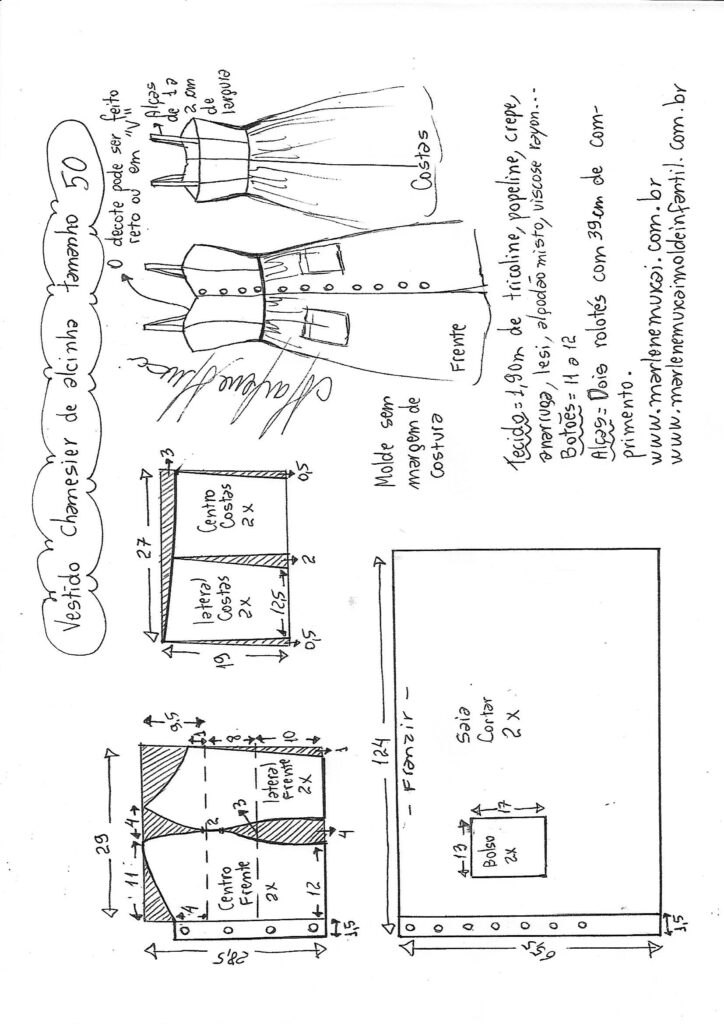 Vestido Chamesier de alcinha tamanho 50
O decote pode ser feito
reto ou em "V"
Alças
de 1 a
2 cm
de
largura
Costas
Frente
Marlene Mukai
Molde sem
margem de
costura
Tecido = 1,90m de tricoline, popeline, crepe,
anarruga, lesi, algodão misto, viscose rayon...
Botões = 11 a 12
Alças = Dois rolotés com 39 cm de com-
primento.
www.marlenemukai.com.br
www.marlenemukaimoldeinfantil.com.br
27
3
19
lateral
Costas
2x
Centro
Costas
2x
12,5
0,5
2
0,5
29
11
4
9,5
1
8
10
4
2
3
Centro
Frente
2x
lateral
Frente
2x
12
4
1
28,5
1,5
124
- Franzir -
Saia
Cortar
2x
13
17
Bolso
2x
1,5